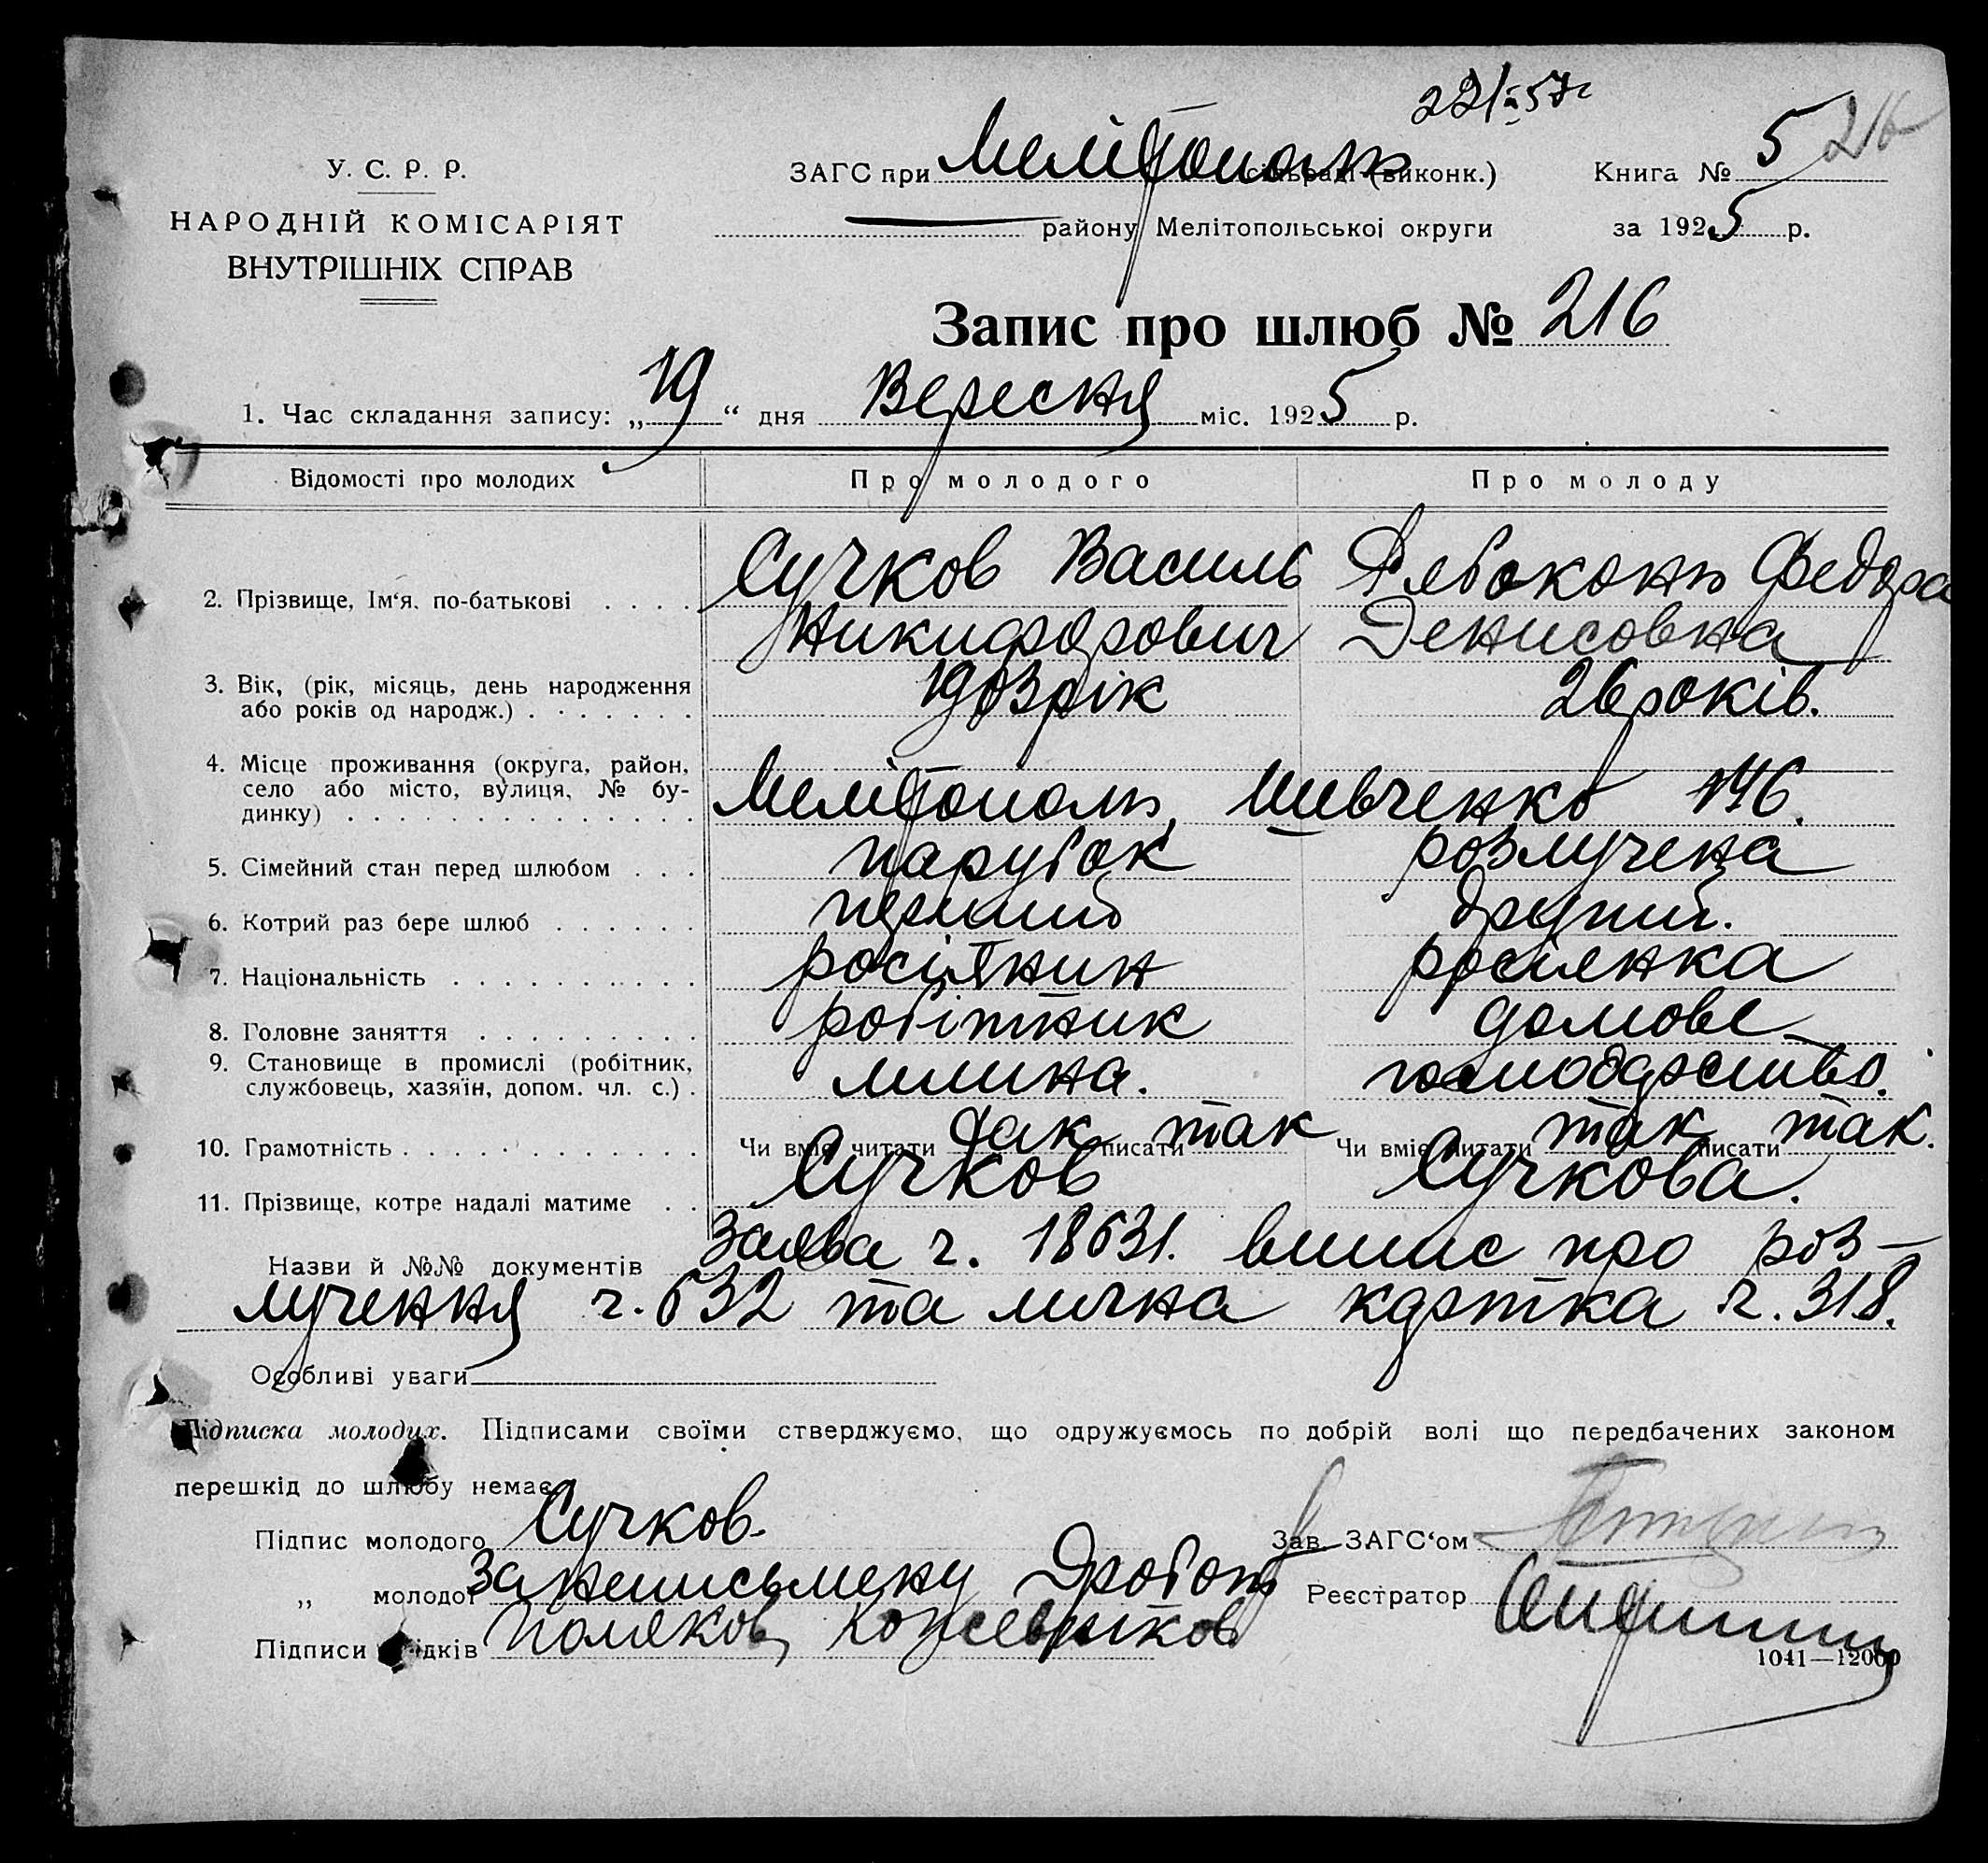 221 57г
У. С. Р. Р.
НАРОДНІЙ КОМІСАРІЯТ
ВНУТРІШНІХ СПРАВ
ЗАГС при Мелітополь сільраді (виконк.) Книга № 5 216
району Мелітопольської округи за 1925 р.
Запис про шлюб № 216
1. Час складання запису: „19“ дня Вересня міс. 1925 р.
Відомості про молодих Про молодого Про молоду
2. Прізвище, Ім‘я, по-батькові Сучков Василь Рябоконь Федора
Никифорович Денисовна
3. Вік, (рік, місяць, день народження
або років од народж.) 1903 рік 26 років.
4. Місце проживання (округа, район,
село або місто, вулиця, № бу-
динку) Мелітополь, Шевченко 146.
5. Сімейний стан перед шлюбом парубок розлучена
6. Котрий раз бере шлюб перший другий.
7. Національність росіянин росіянка
8. Головне заняття робітник домове
9. Становище в промислі (робітник,
службовець, хазяїн, допом. чл. с.) млина. господарство.
10. Грамотність Чи вміє читати так писати так Чи вміє читати так писати так.
11. Прізвище, котре надалі матиме Сучков Сучкова.
Назви й №№ документів Заява ч. 18631. випис про роз-
лучення ч. 632 та лична картка ч. 318.
Особливі уваги
Підписка молодих. Підписами своїми стверджуємо, що одружуємось по добрій волі що передбачених законом
перешкід до шлюбу немає.
Підпис молодого Сучков. Зав. ЗАГС‘ом
„ молодої За неписьмену Дробот Реєстратор
Підписи свідків Поляков, Кожевников
1041—12000